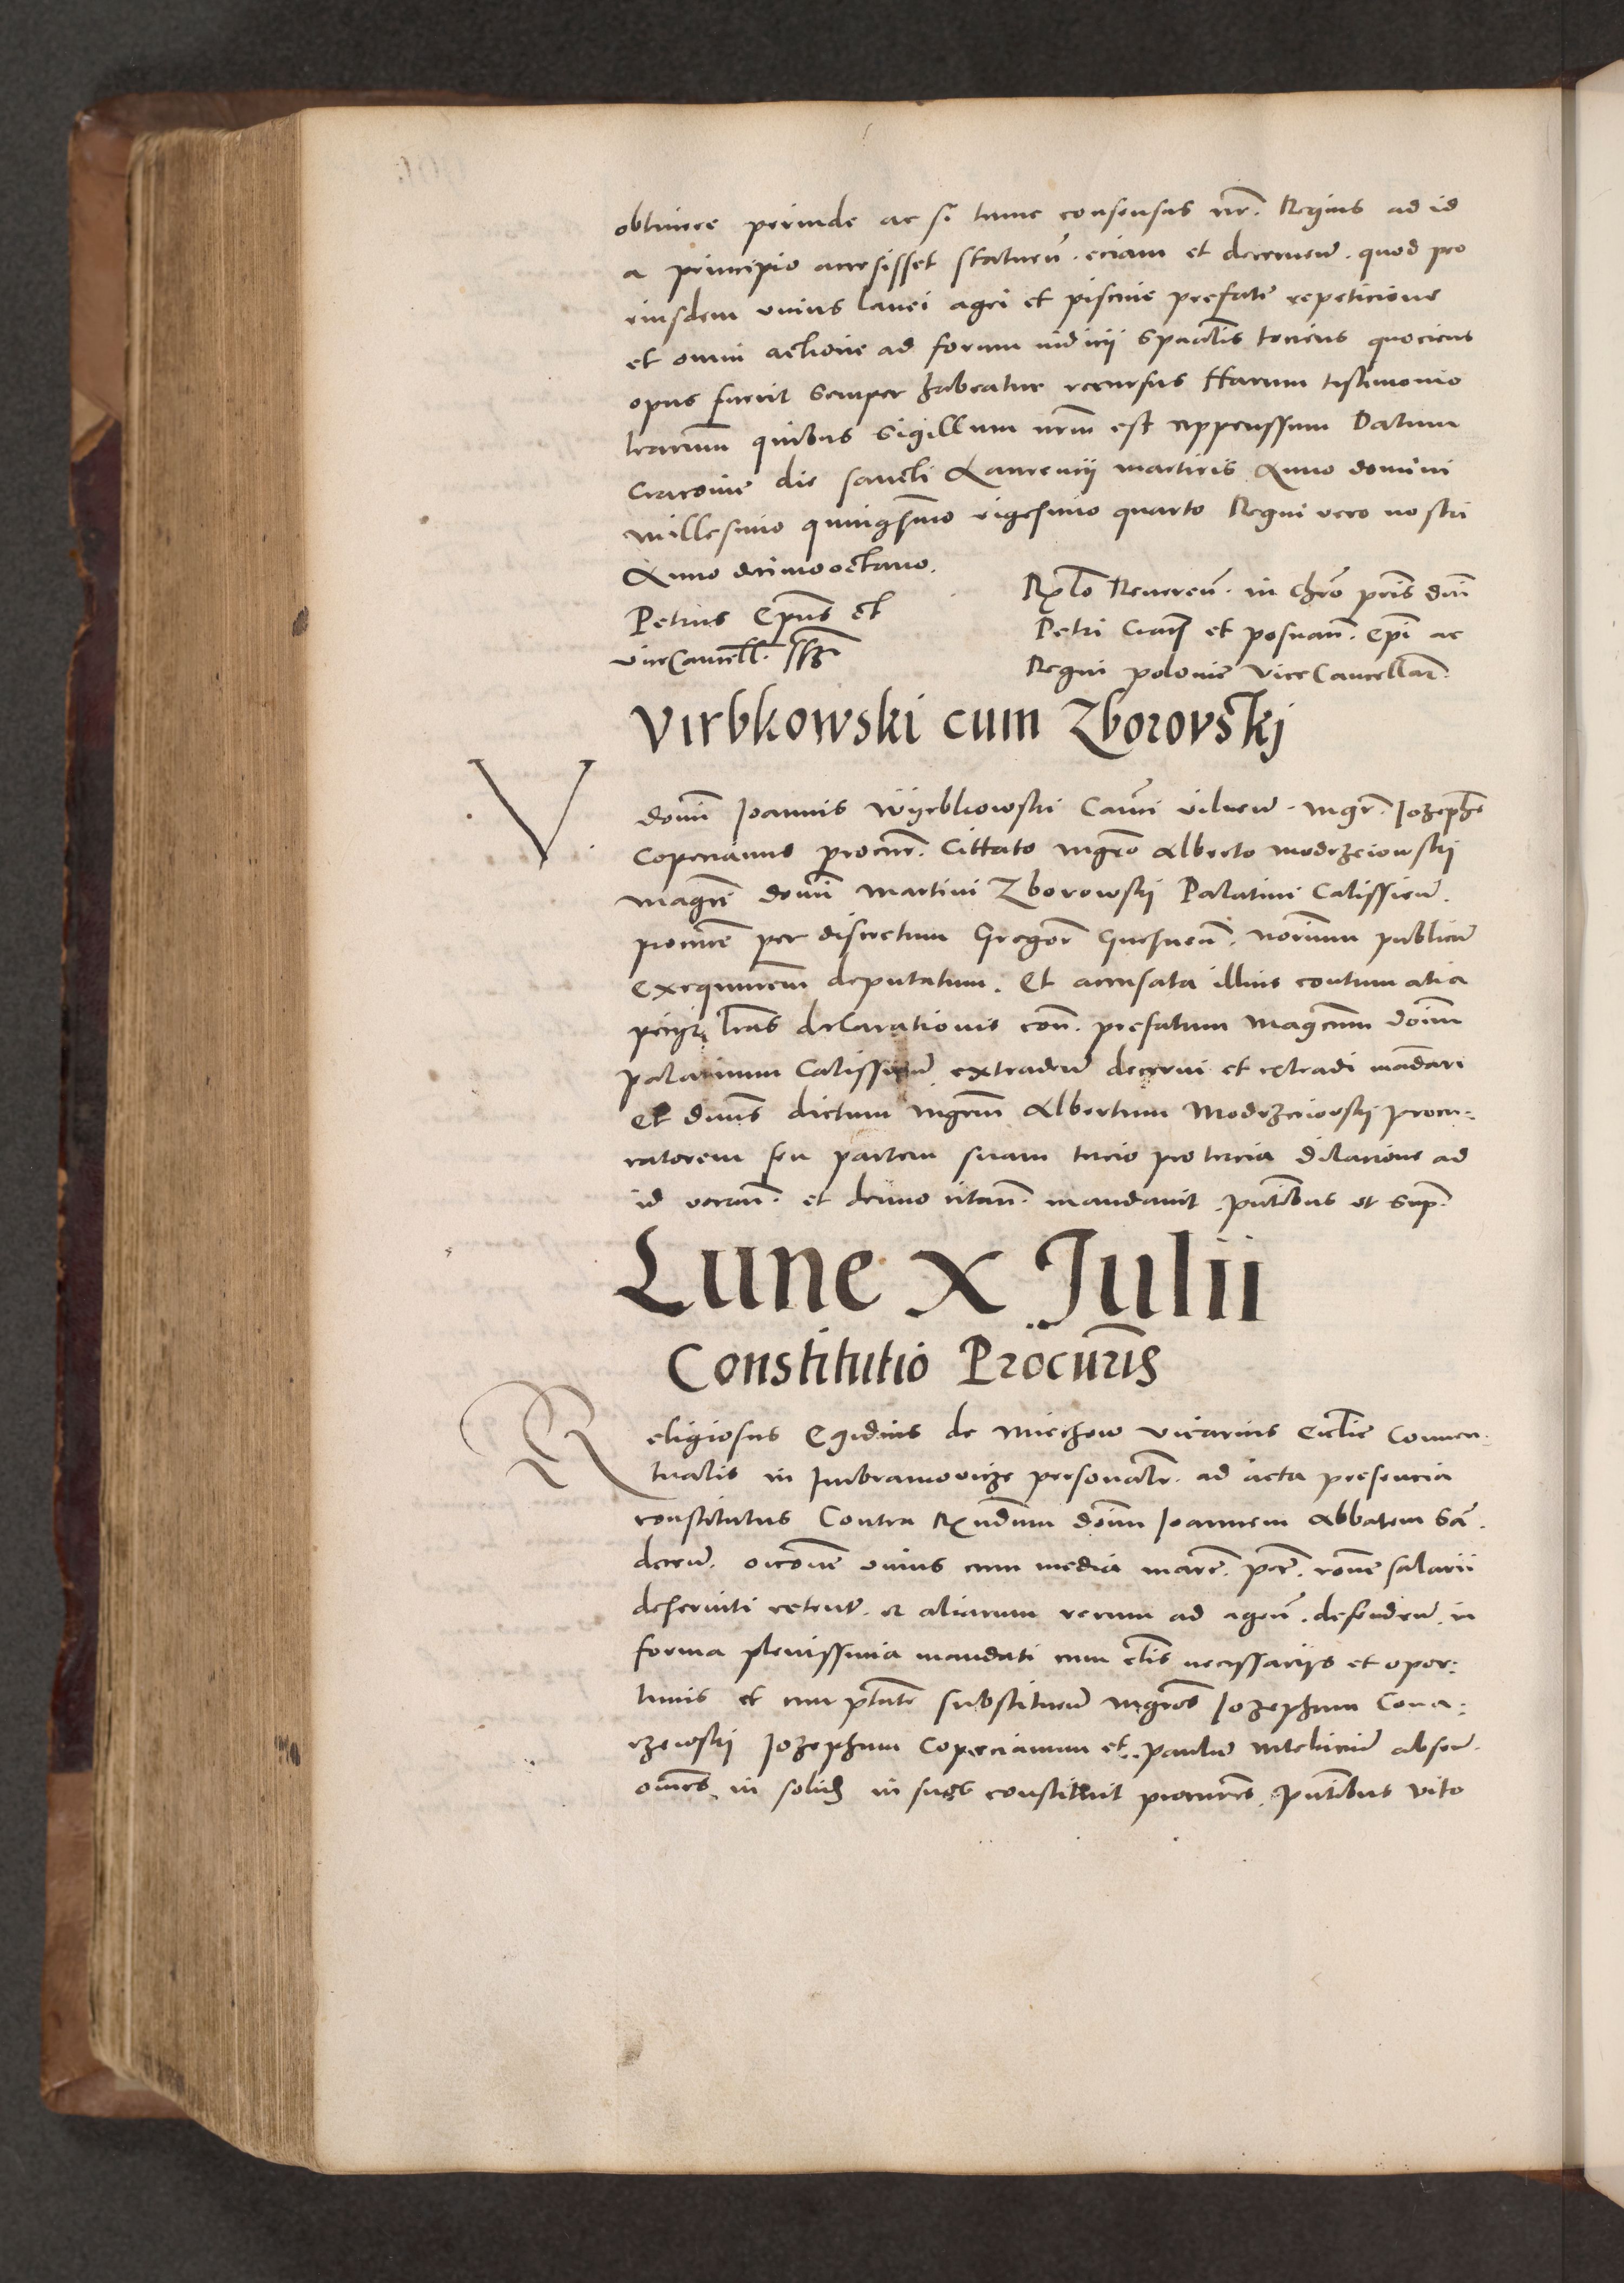 obtinere perinde ac si tunc consensus nr̄. Regius ad id
a principio accessisset statuen̄. eciam et decernen̄. quod pro
eiusdem unius lanei agri et piscine prefate repeticione
et omni actione ad forum iudicii sp̄ualis tociens quociens
opus fuerit semper habeatur recursus Harum testimonio
lr̄arum quibus sigillum nr̄m est appenssum Datum
Cracovie die sancti Laurencii martiris Anno domini
millesimo quingēsimo vigesimo quarto Regni vero nostri
Anno decimooctavo.
Petrus Ep̄us et
viceCancell. sst
Rel̄o Reveren̄. in Chr̄o pr̄is dn̄i
Petri Crac̄ et posnan̄. Ep̄i ac
Regni polonie ViceCancellar̄.
Virbkowski cum Zborovskj
V domini Joannis Wÿrbkowski Can̄ci vilnen̄. mgr̄. Jozeph9
Copercianus procur̄. Cittato mgr̄o Alberto modrzeiowskij
maḡci domini Martini Zborowskij Palatini Calissien̄.
procur̄e per discretum Gregor̄ Gnesnen̄. notarium publicū
exequutorem deputatum. Et accusata illius contumatia
peciit lr̄as declarationis con̄. prefatum Maḡcum dom̄
palatinum Calissien̄ extraden̄ decerni et extradi mādari
Et dn̄us dictum mgr̄m Albertum Modrzeiowskij procu-
ratorem seu partem suam tercio pro tercia dilacione ad
id vocan̄. et denuo citan̄. mandavit. p̄ntibus ut sup̄.
Lune X Julii
Constitutio Procur̄is
Religiosus Egidius de Miechow vicarius Ecclie Conven-
tualis in Imbramovicze personalr̄. ad acta presencia
constitutus Contra R̄ndum domin̄ Joannem Abbatem San̄.
decen̄. occōne unius cum media marc̄. pec̄. rōne salarii
deserviti retent̄. et aliarum rerum ad agen̄. defenden̄. in
forma plenissima mandati cum cl̄is necessarijs et opor-
tunis et cum p̄tate substituen̄ mgr̄os Jozephum Cona-
rzewskij Jozephum Copercianum et paulum absen̄.
om̄es in solid̄ in suos constituit procur̄es. p̄ntibus vito